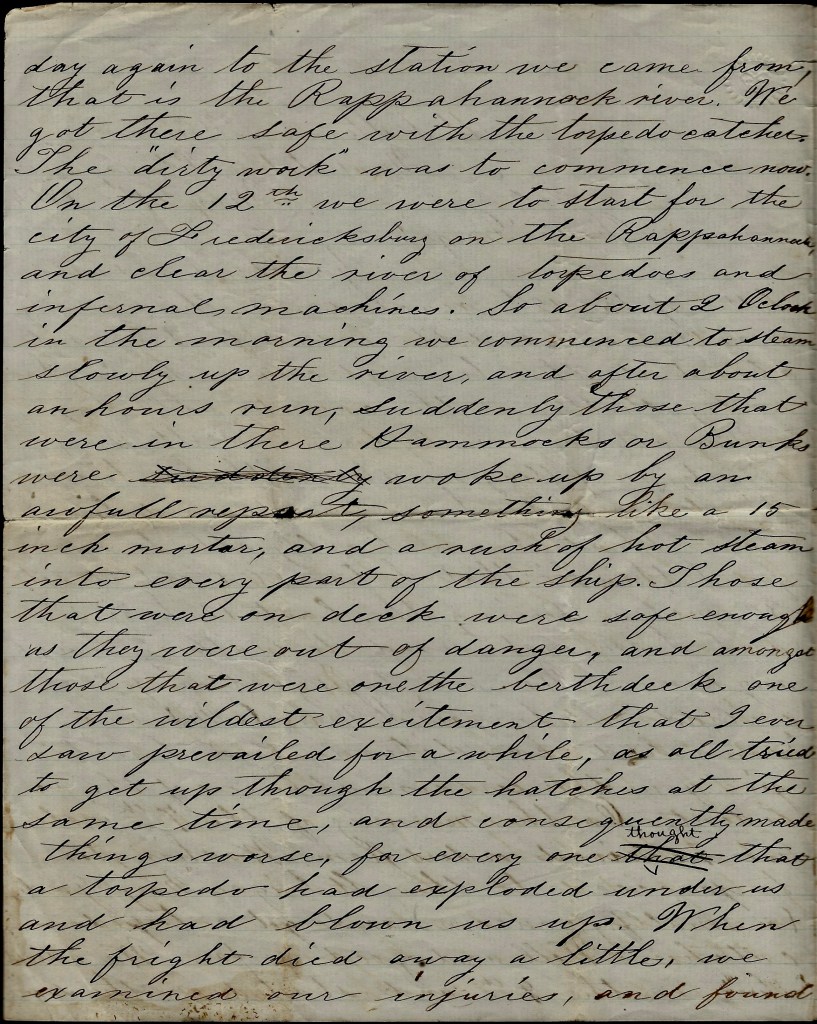 day again to the station we came from,
that is the Rappahannock river. We
got there safe with the torpedo catcher.
The "dirty work" was to commence now.
On the 12th we were to start for the
city of Fredericksburg on the Rappahannock,
and clear the river of torpedoes and
infernal machines. So about 2 Oclock
in the morning we commenced to steam
slowly up the river, and after about
an hours run, suddenly those that
were in there Hammocks or Bunks
were suddenly woke up by an
awfull report, something like a 15
inch mortar, and a rush of hot steam
into every part of the ship. Those
that were on deck were safe enough
as they were out of danger, and amongst
those that were on the berthdeck one
of the wildest excitement that I ever
saw prevailed for a while, as all tried
to get up through the hatches at the
same time, and consequently made
thought
things worse, for every one that that
a torpedo had exploded under us
and had blown us up. When
the fright died away a little, we
examined our injuries, and found